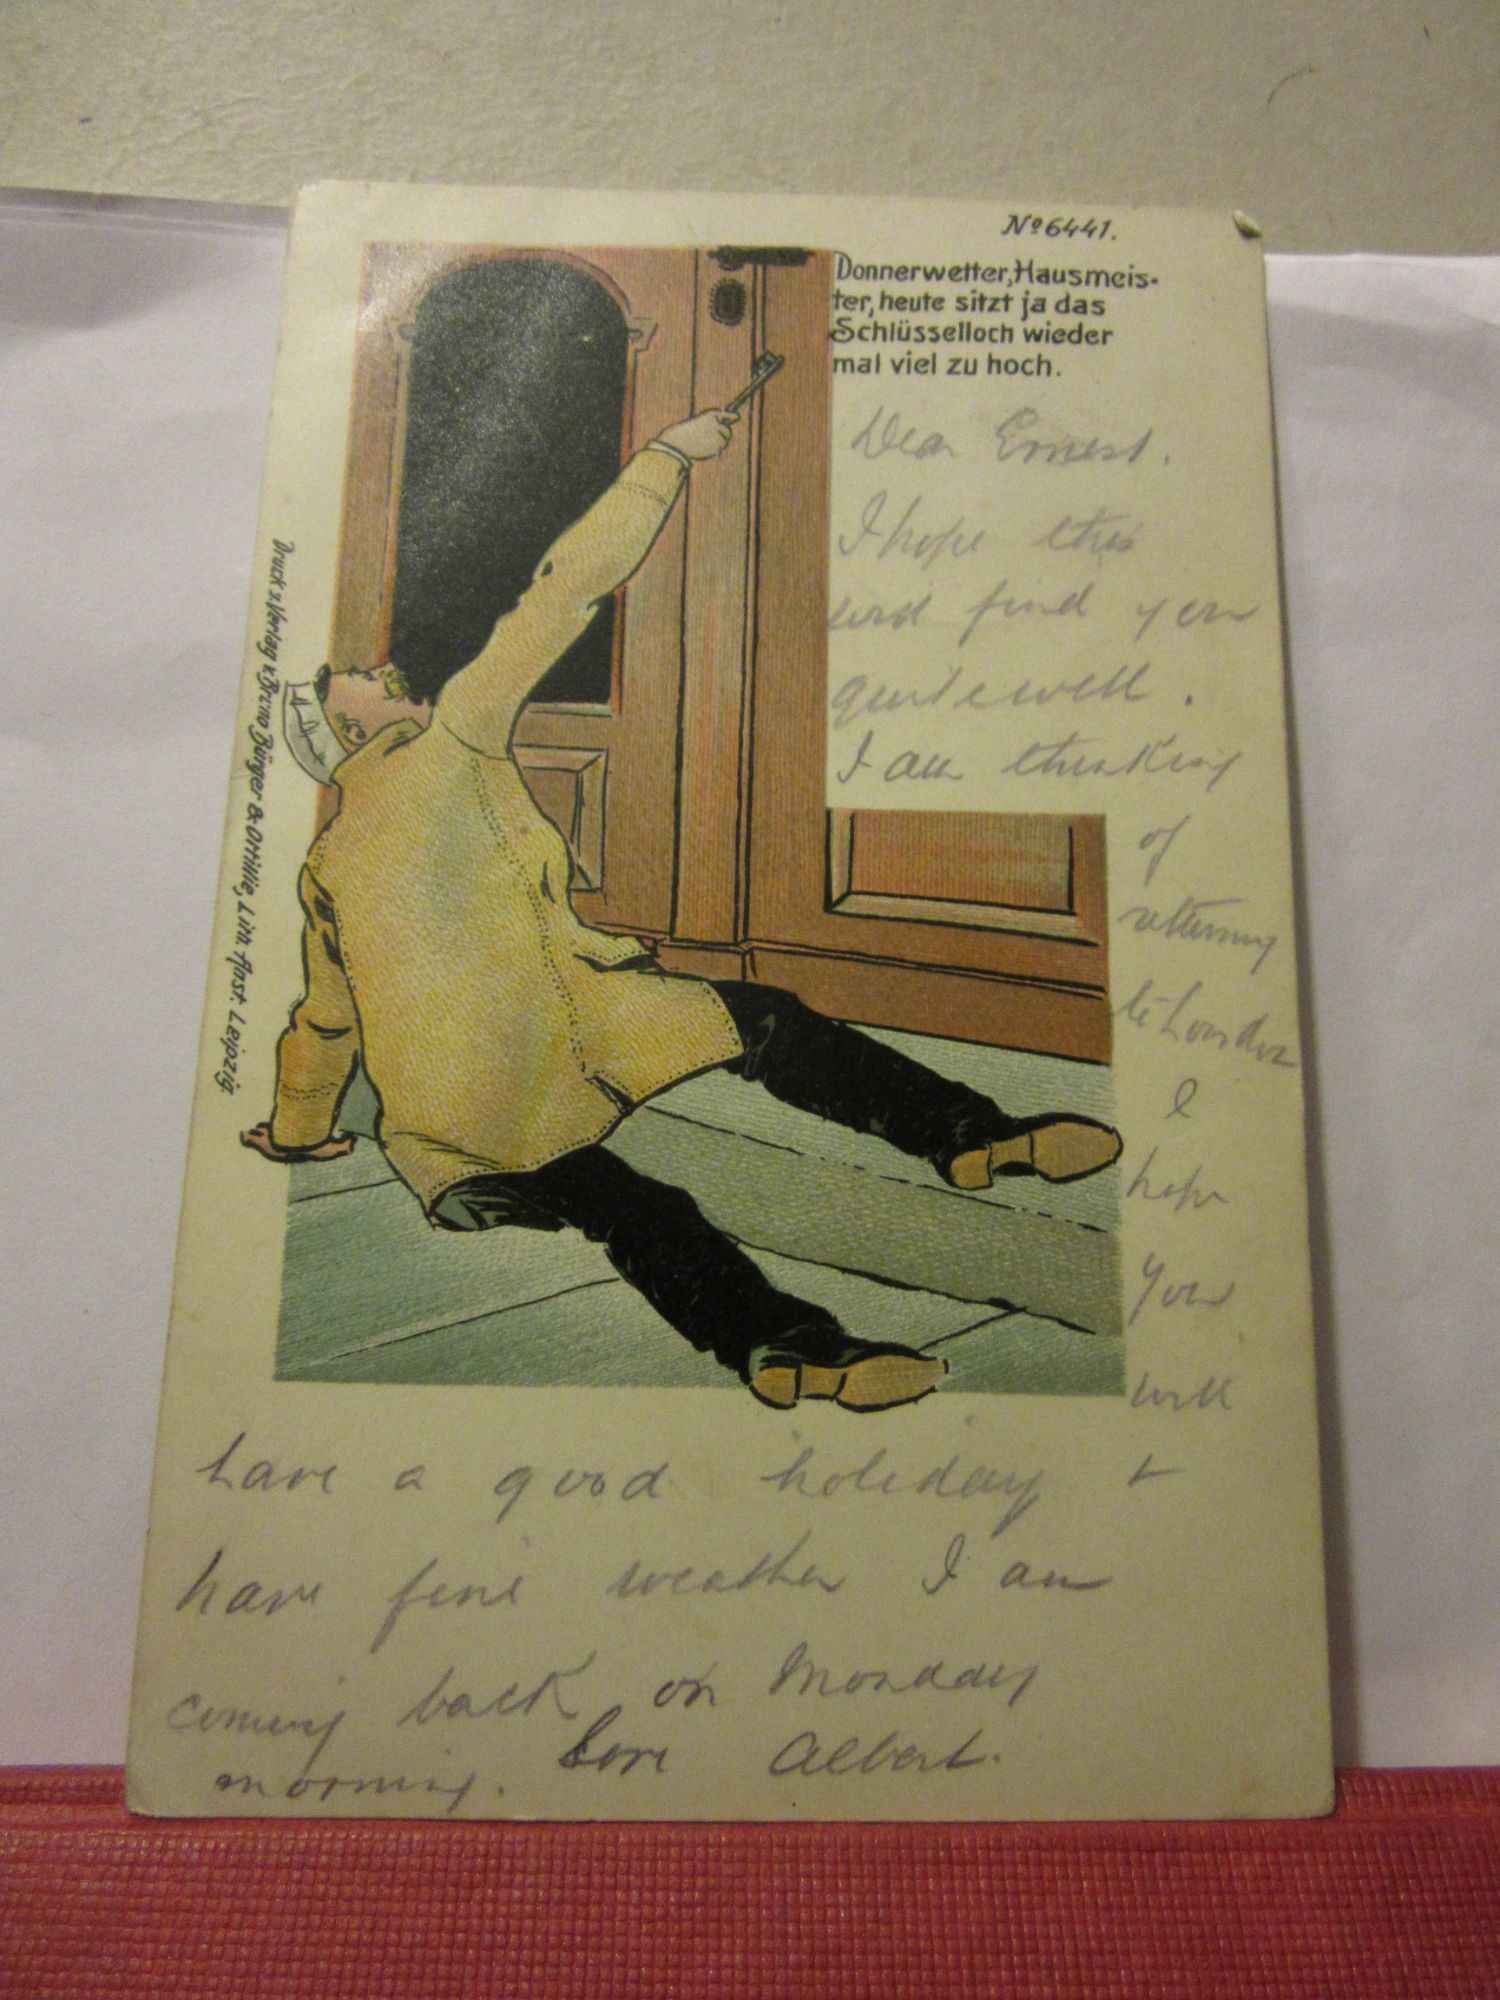 No 6441.
Donnerwetter, Hausmeis-
ter, heute sitzt ja das
Schlüsselloch wieder
mal viel zu hoch.
Dear Ernest.
I hope this
will find you
quite well.
I am thinking
of
returning
to London
I
hope
you
will
have a good holiday +
have fine weather I am
coming back on Monday
morning. Love Albert.
Druck u. Verlag v. Bruno Bürger & Ottillie, Lith. Anst. Leipzig.